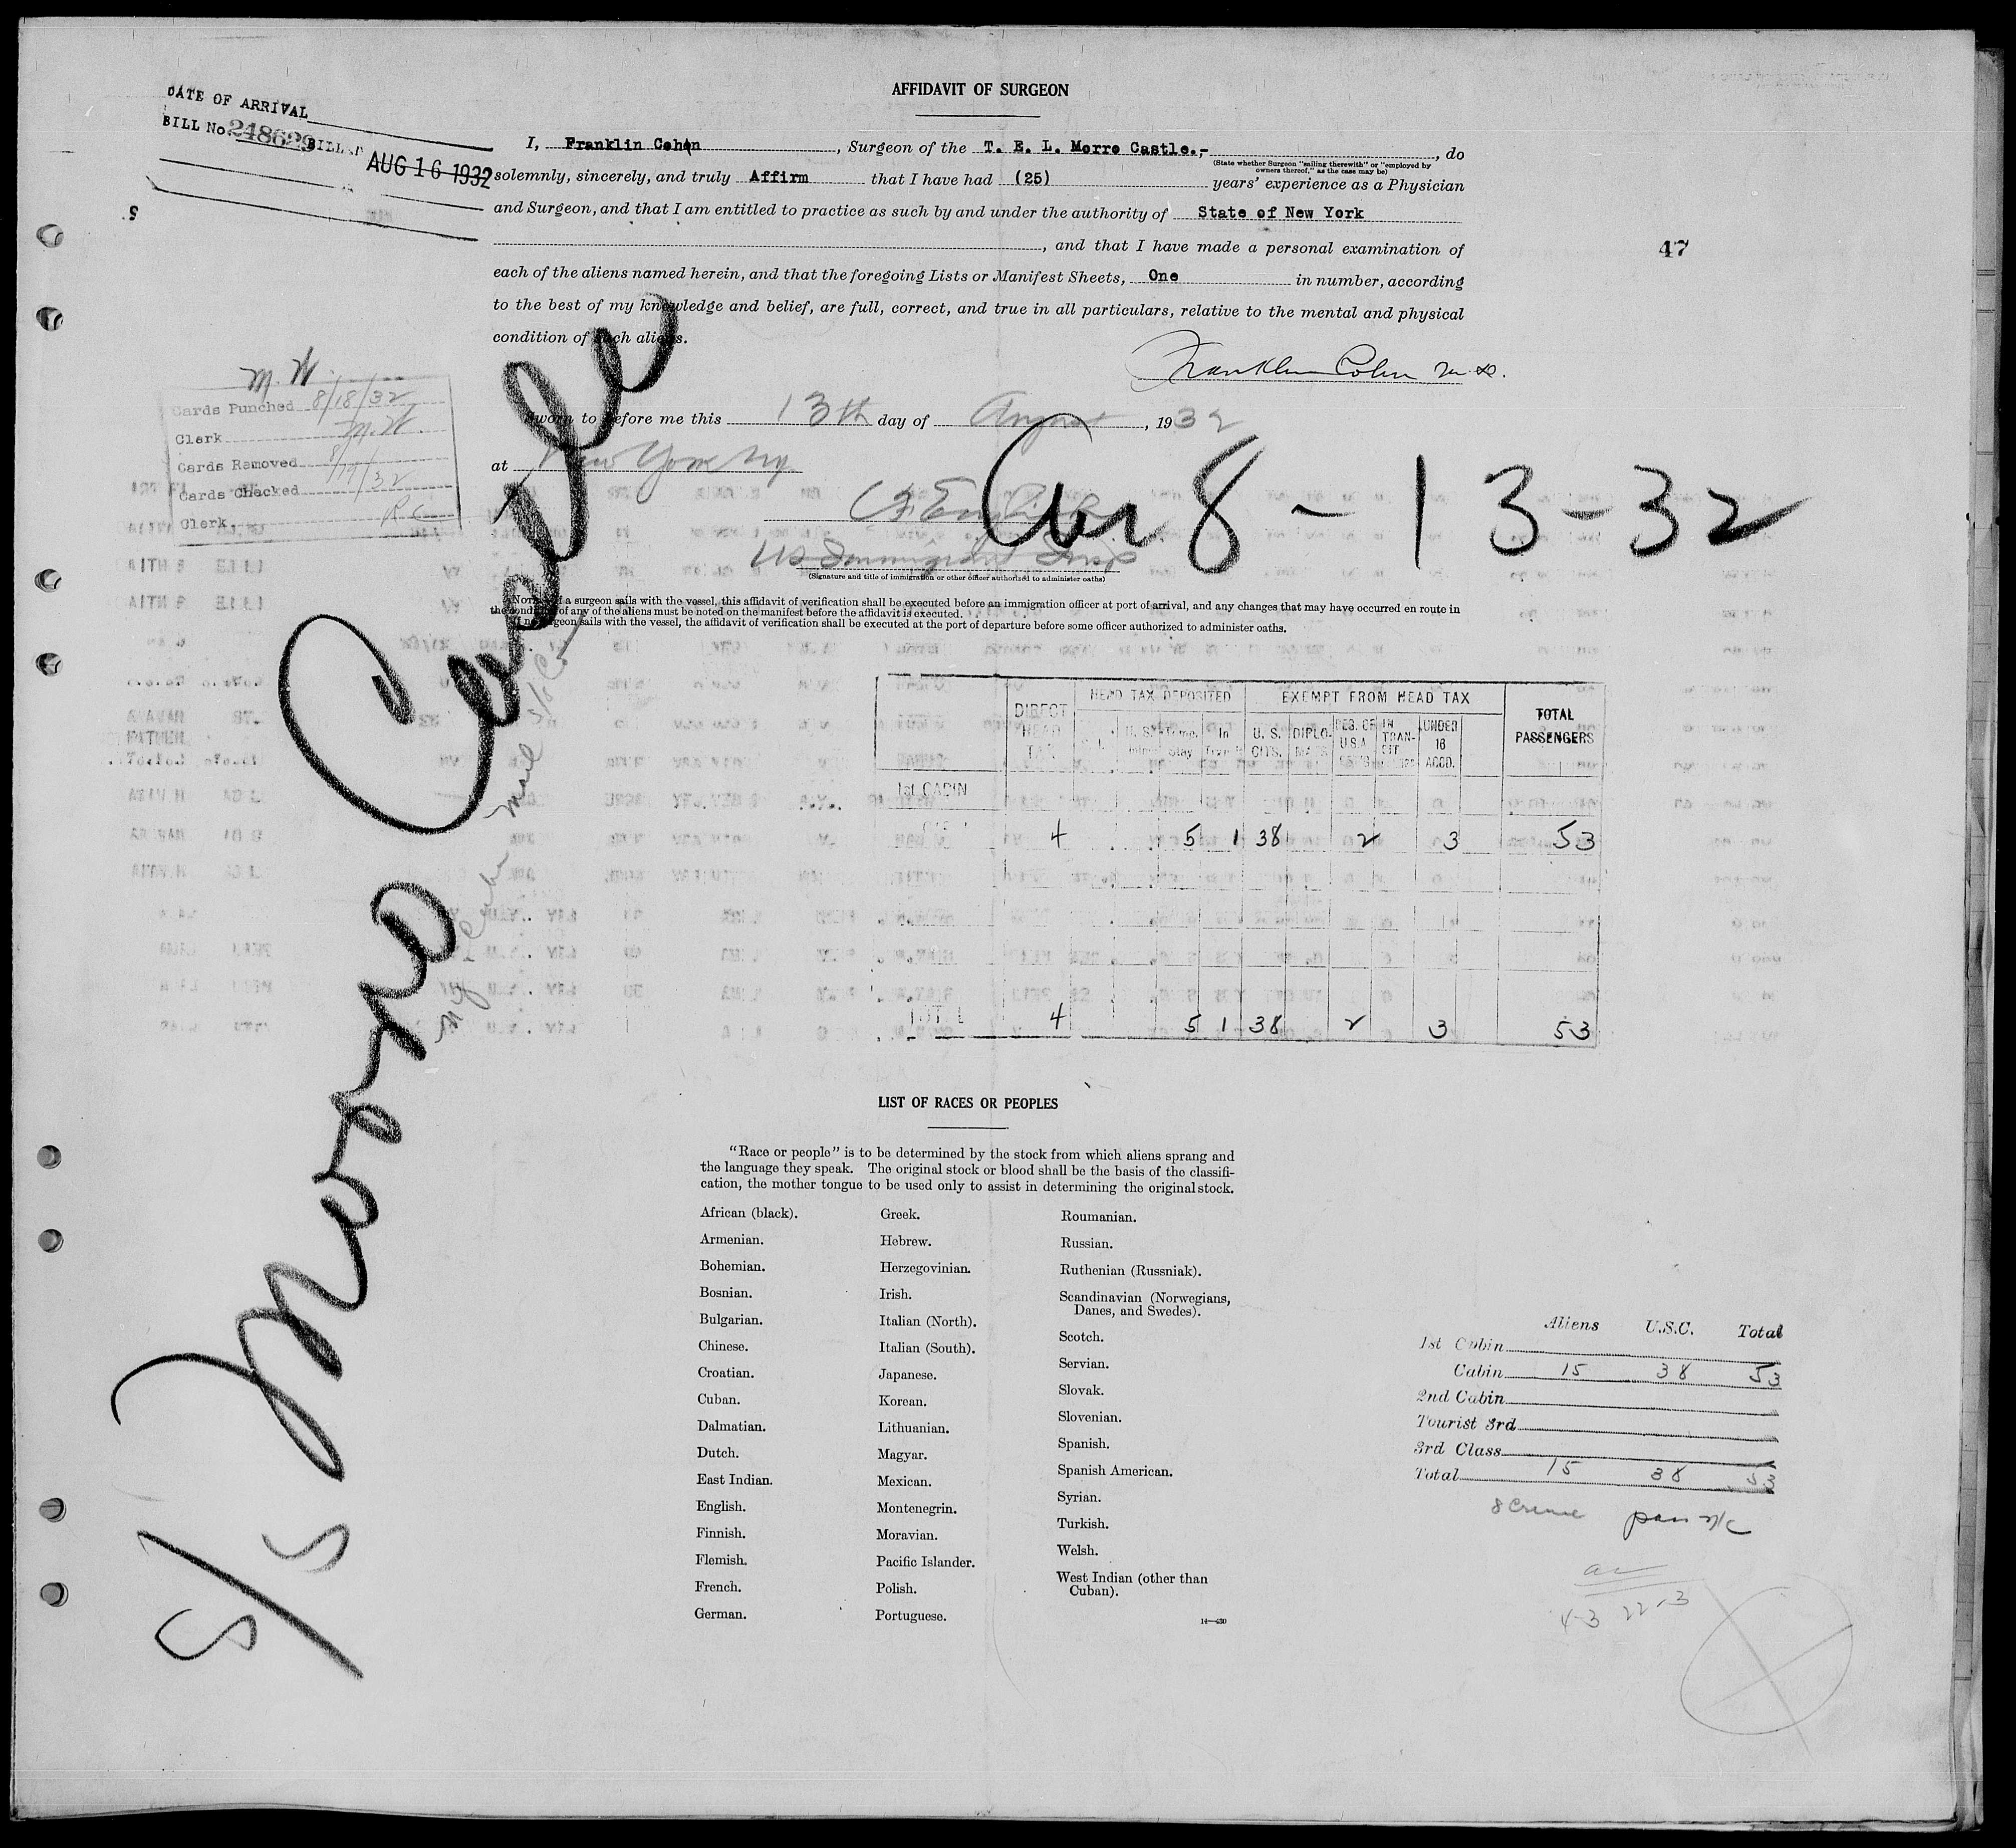 AFFIDAVIT OF SURGEON
DATE OF ARRIVAL
BILL No. 248629
AUG 16 1932
I, Franklin Cohen, Surgeon of the T. E. L. Morro Castle.,- , do
(State whether Surgeon "sailing therewith" or "employed by
owners thereof," as the case may be)
solemnly, sincerely, and truly Affirm that I have had (25) years' experience as a Physician
and Surgeon, and that I am entitled to practice as such by and under the authority of State of New York
, and that I have made a personal examination of
each of the aliens named herein, and that the foregoing Lists or Manifest Sheets, One in number, according
to the best of my knowledge and belief, are full, correct, and true in all particulars, relative to the mental and physical
condition of such aliens.
47
Franklin Cohen M.D.
M. W.
Cards Punched 8/18/32
Clerk M. W.
Cards Removed
Cards Checked 8/19/32
Clerk R C
Sworn to before me this 13th day of August, 1932
at New York NY
US Immigrant Insp
(Signature and title of immigration or other officer authorized to administer oaths)
Arr 8-13-32
NOTE.—If a surgeon sails with the vessel, this affidavit of verification shall be executed before an immigration officer at port of arrival, and any changes that may have occurred en route in
the condition of any of the aliens must be noted on the manifest before the affidavit is executed.
If no surgeon sails with the vessel, the affidavit of verification shall be executed at the port of departure before some officer authorized to administer oaths.
S/S Morro Castle
N.Y. & Cuba Mail S/S Co
DIRECT HEAD TAX
HEAD TAX DEPOSITED
EXEMPT FROM HEAD TAX
TOTAL PASSENGERS
Temp. Stay
In Transit
U. S. CITS.
DIPLO-MATS
RES. OF U.S.A.
IN TRAN-SIT
UNDER 16 ACCD.
1st CABIN
4 5 1 38 2 3 53
TOTAL 4 5 1 38 2 3 53
LIST OF RACES OR PEOPLES
"Race or people" is to be determined by the stock from which aliens sprang and
the language they speak. The original stock or blood shall be the basis of the classifi-
cation, the mother tongue to be used only to assist in determining the original stock.
African (black).
Armenian.
Bohemian.
Bosnian.
Bulgarian.
Chinese.
Croatian.
Cuban.
Dalmatian.
Dutch.
East Indian.
English.
Finnish.
Flemish.
French.
German.
Greek.
Hebrew.
Herzegovinian.
Irish.
Italian (North).
Italian (South).
Japanese.
Korean.
Lithuanian.
Magyar.
Mexican.
Montenegrin.
Moravian.
Pacific Islander.
Polish.
Portuguese.
Roumanian.
Russian.
Ruthenian (Russniak).
Scandinavian (Norwegians,
Danes, and Swedes).
Scotch.
Servian.
Slovak.
Slovenian.
Spanish.
Spanish American.
Syrian.
Turkish.
Welsh.
West Indian (other than
Cuban).
14—430
Aliens U.S.C. Total
1st Cabin
Cabin 15 38 53
2nd Cabin
Tourist 3rd
3rd Class
Total 15 38 53
4-3 22-3